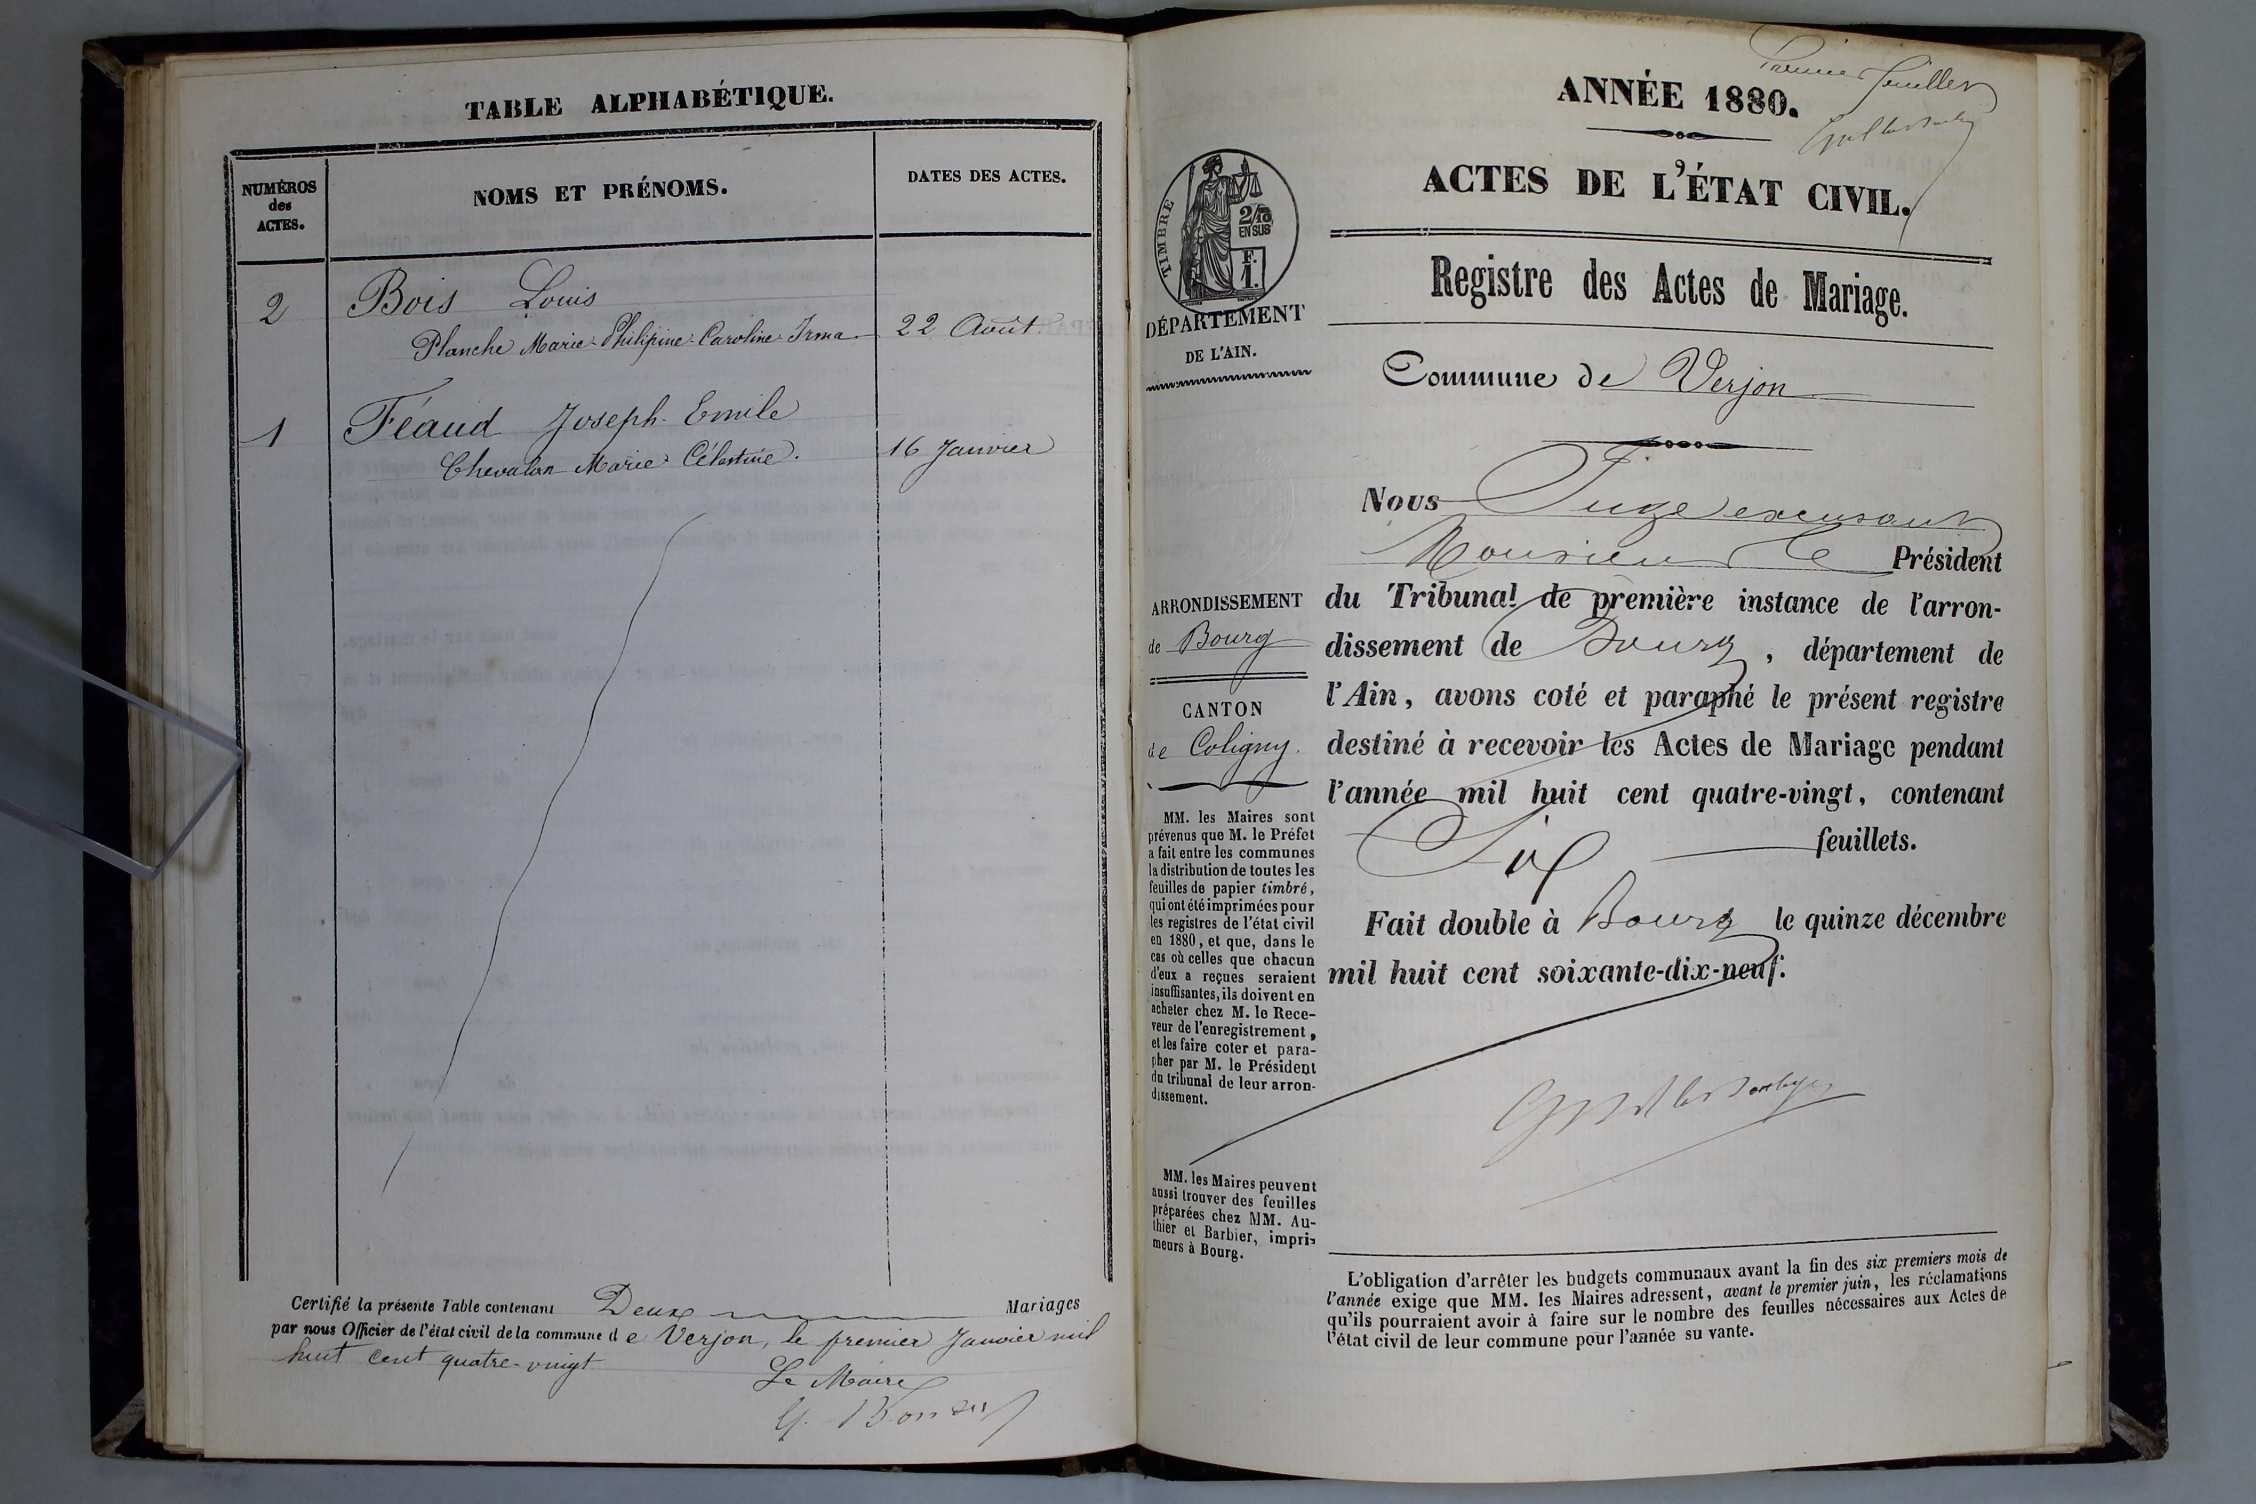 TABLE ALPHABÉTIQUE.
NUMÉROS
des
ACTES.
NOMS ET PRÉNOMS.
DATES DES ACTES.
2 Bois Louis
Planche Marie-Philipine-Caroline-Irma 22 Août
1 Féaud Joseph-Emile
Chevalon Marie Célestine. 16 Janvier
Certifié la présente Table contenant Deux Mariages
par nous Officier de l'état civil de la commune de Verjon, le premier Janvier mil
huit cent quatre-vingt
Le Maire
Premier feuillet
ANNÉE 1880.
ACTES DE L'ÉTAT CIVIL.
TIMBRE
2/10
EN SUS
F.
1.
DÉPARTEMENT
DE L'AIN.
Registre des Actes de Mariage.
Commune de Verjon
ARRONDISSEMENT
de Bourg
CANTON
de Coligny.
MM. les Maires sont
prévenus que M. le Préfet
a fait entre les communes
la distribution de toutes les
feuilles de papier timbré,
qui ont été imprimées pour
les registres de l'état civil
en 1880, et que, dans le
cas où celles que chacun
d'eux a reçues seraient
insuffisantes, ils doivent en
acheter chez M. le Rece-
veur de l'enregistrement,
et les faire coter et para-
pher par M. le Président
du tribunal de leur arron-
dissement.
MM. les Maires peuvent
aussi trouver des feuilles
préparées chez MM. Au-
thier et Barbier, impri-
meurs à Bourg.
Nous Juge excusant
Monsieur le Président
du Tribunal de première instance de l'arron-
dissement de Bourg, département de
l'Ain, avons coté et paraphé le présent registre
destiné à recevoir les Actes de Mariage pendant
l'année mil huit cent quatre-vingt, contenant
Six feuillets.
Fait double à Bourg le quinze décembre
mil huit cent soixante-dix-neuf.
L'obligation d'arrêter les budgets communaux avant la fin des six premiers mois de
l'année exige que MM. les Maires adressent, avant le premier juin, les réclamations
qu'ils pourraient avoir à faire sur le nombre des feuilles nécessaires aux Actes de
l'état civil de leur commune pour l'année su vante.